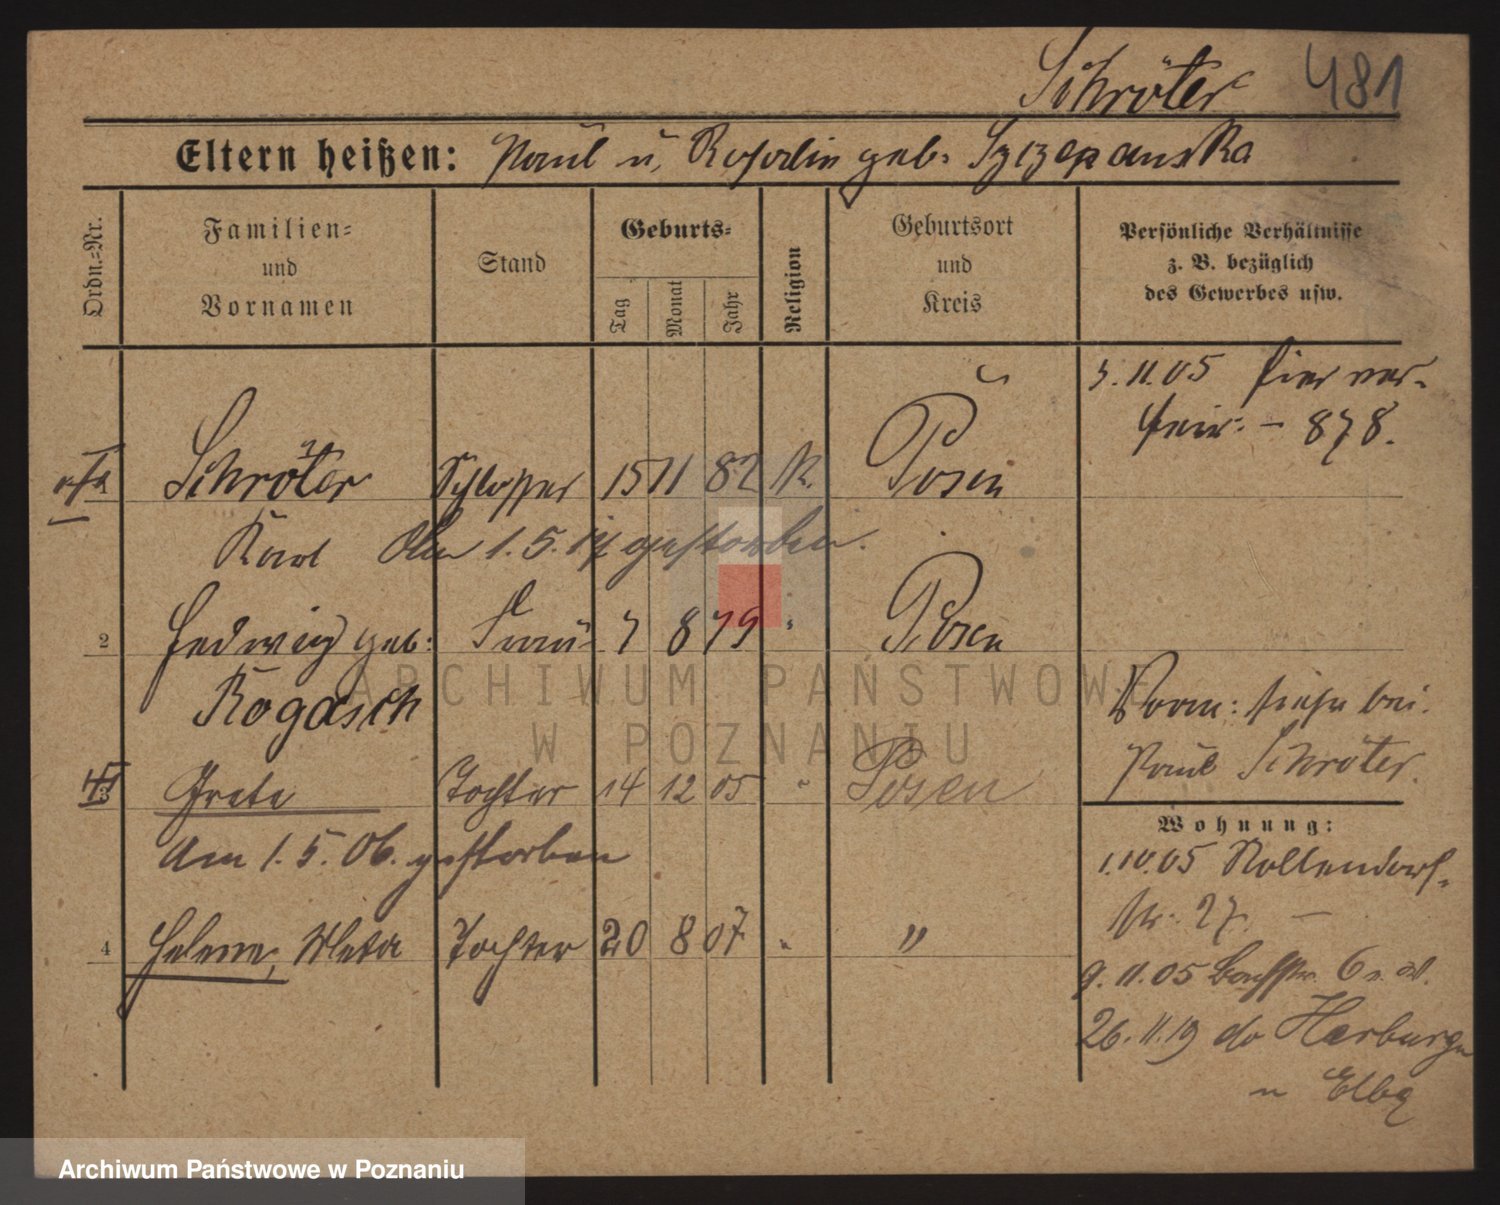 Schröter 481
Eltern heißen: Paul u. Rosalie geb. Szczepanska
Ordn.-Nr.
Familien- und Vornamen
Stand
Geburts-
Tag Monat Jahr
Religion
Geburtsort und Kreis
Persönliche Verhältnisse
z. B. bezüglich
des Gewerbes usw.
3.11.05 hier ver-
heir: – 878.
Schröter Schlosser 15 11 82 K. Posen
Karl Am 1.5.14 gestorben.
2 Hedwig geb: Frau 7 8 79 " Posen
Rogasch
Vorm: siehe bei
Paul Schröter.
3 Grete Tochter 14 12 05 " Posen
Am 1.5.06. gestorben
4 Helene, Meta Tochter 20 8 07 " "
Wohnung:
1.10.05 Nollendorf-
str. 27. –
9.11.05 Bachstr. 6
26.11.19 do Harburg
Elbg
ARCHIWUM PAŃSTWOWE
W POZNANIU
Archiwum Państwowe w Poznaniu